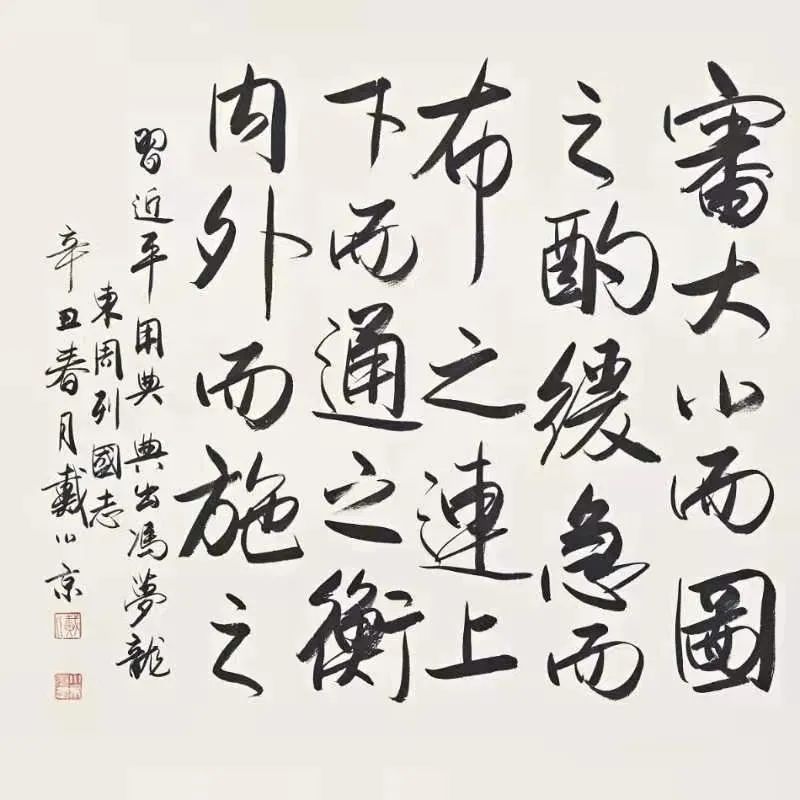 審大小而圖
之酌緩急而
布之連上
下而通之衡
内外而施之
習近平用典 典出馮夢龍
東周列國志
辛丑春月戴小京